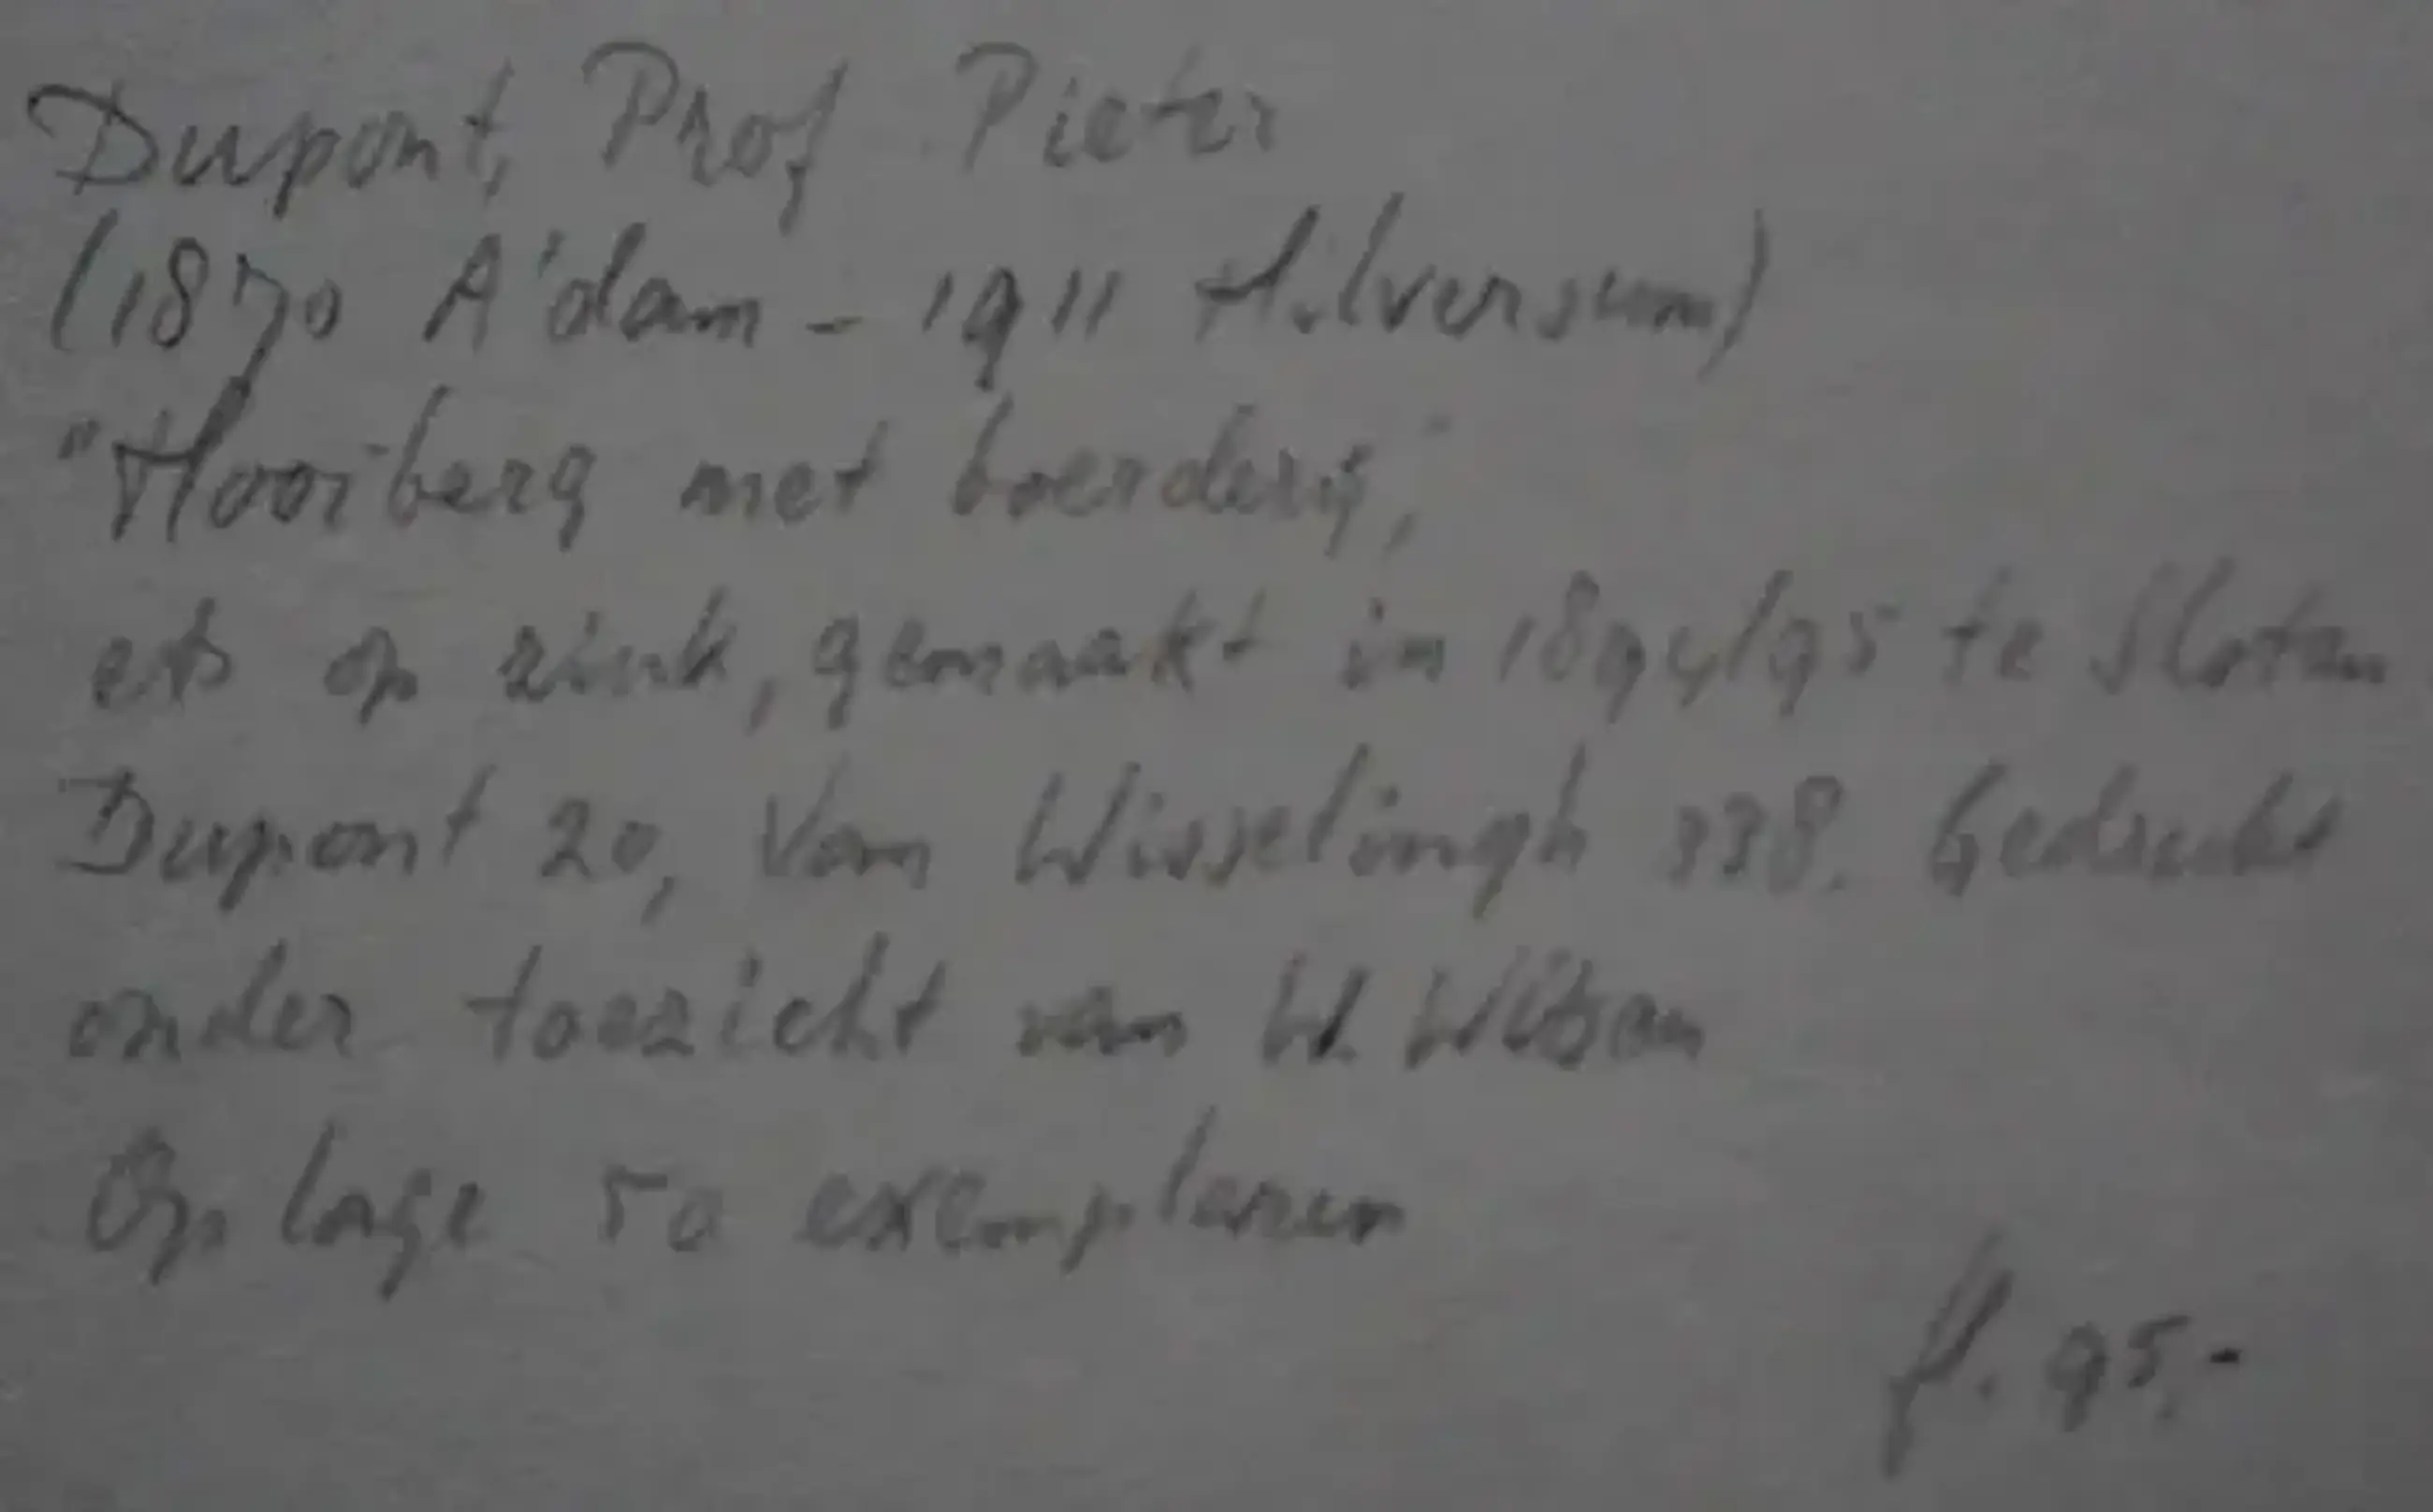 Dupont, Prof Pieter
(1870 A'dam - 1911 Hilversum)
"Hooiberg met boerderij,"
ets op zink, gemaakt in 1894/95 te Sloten
Dupont 20, Van Wisselingh 338. Gedrukt
onder toezicht van W. Witsen
Oplage 50 exemplaren
f. 95,-